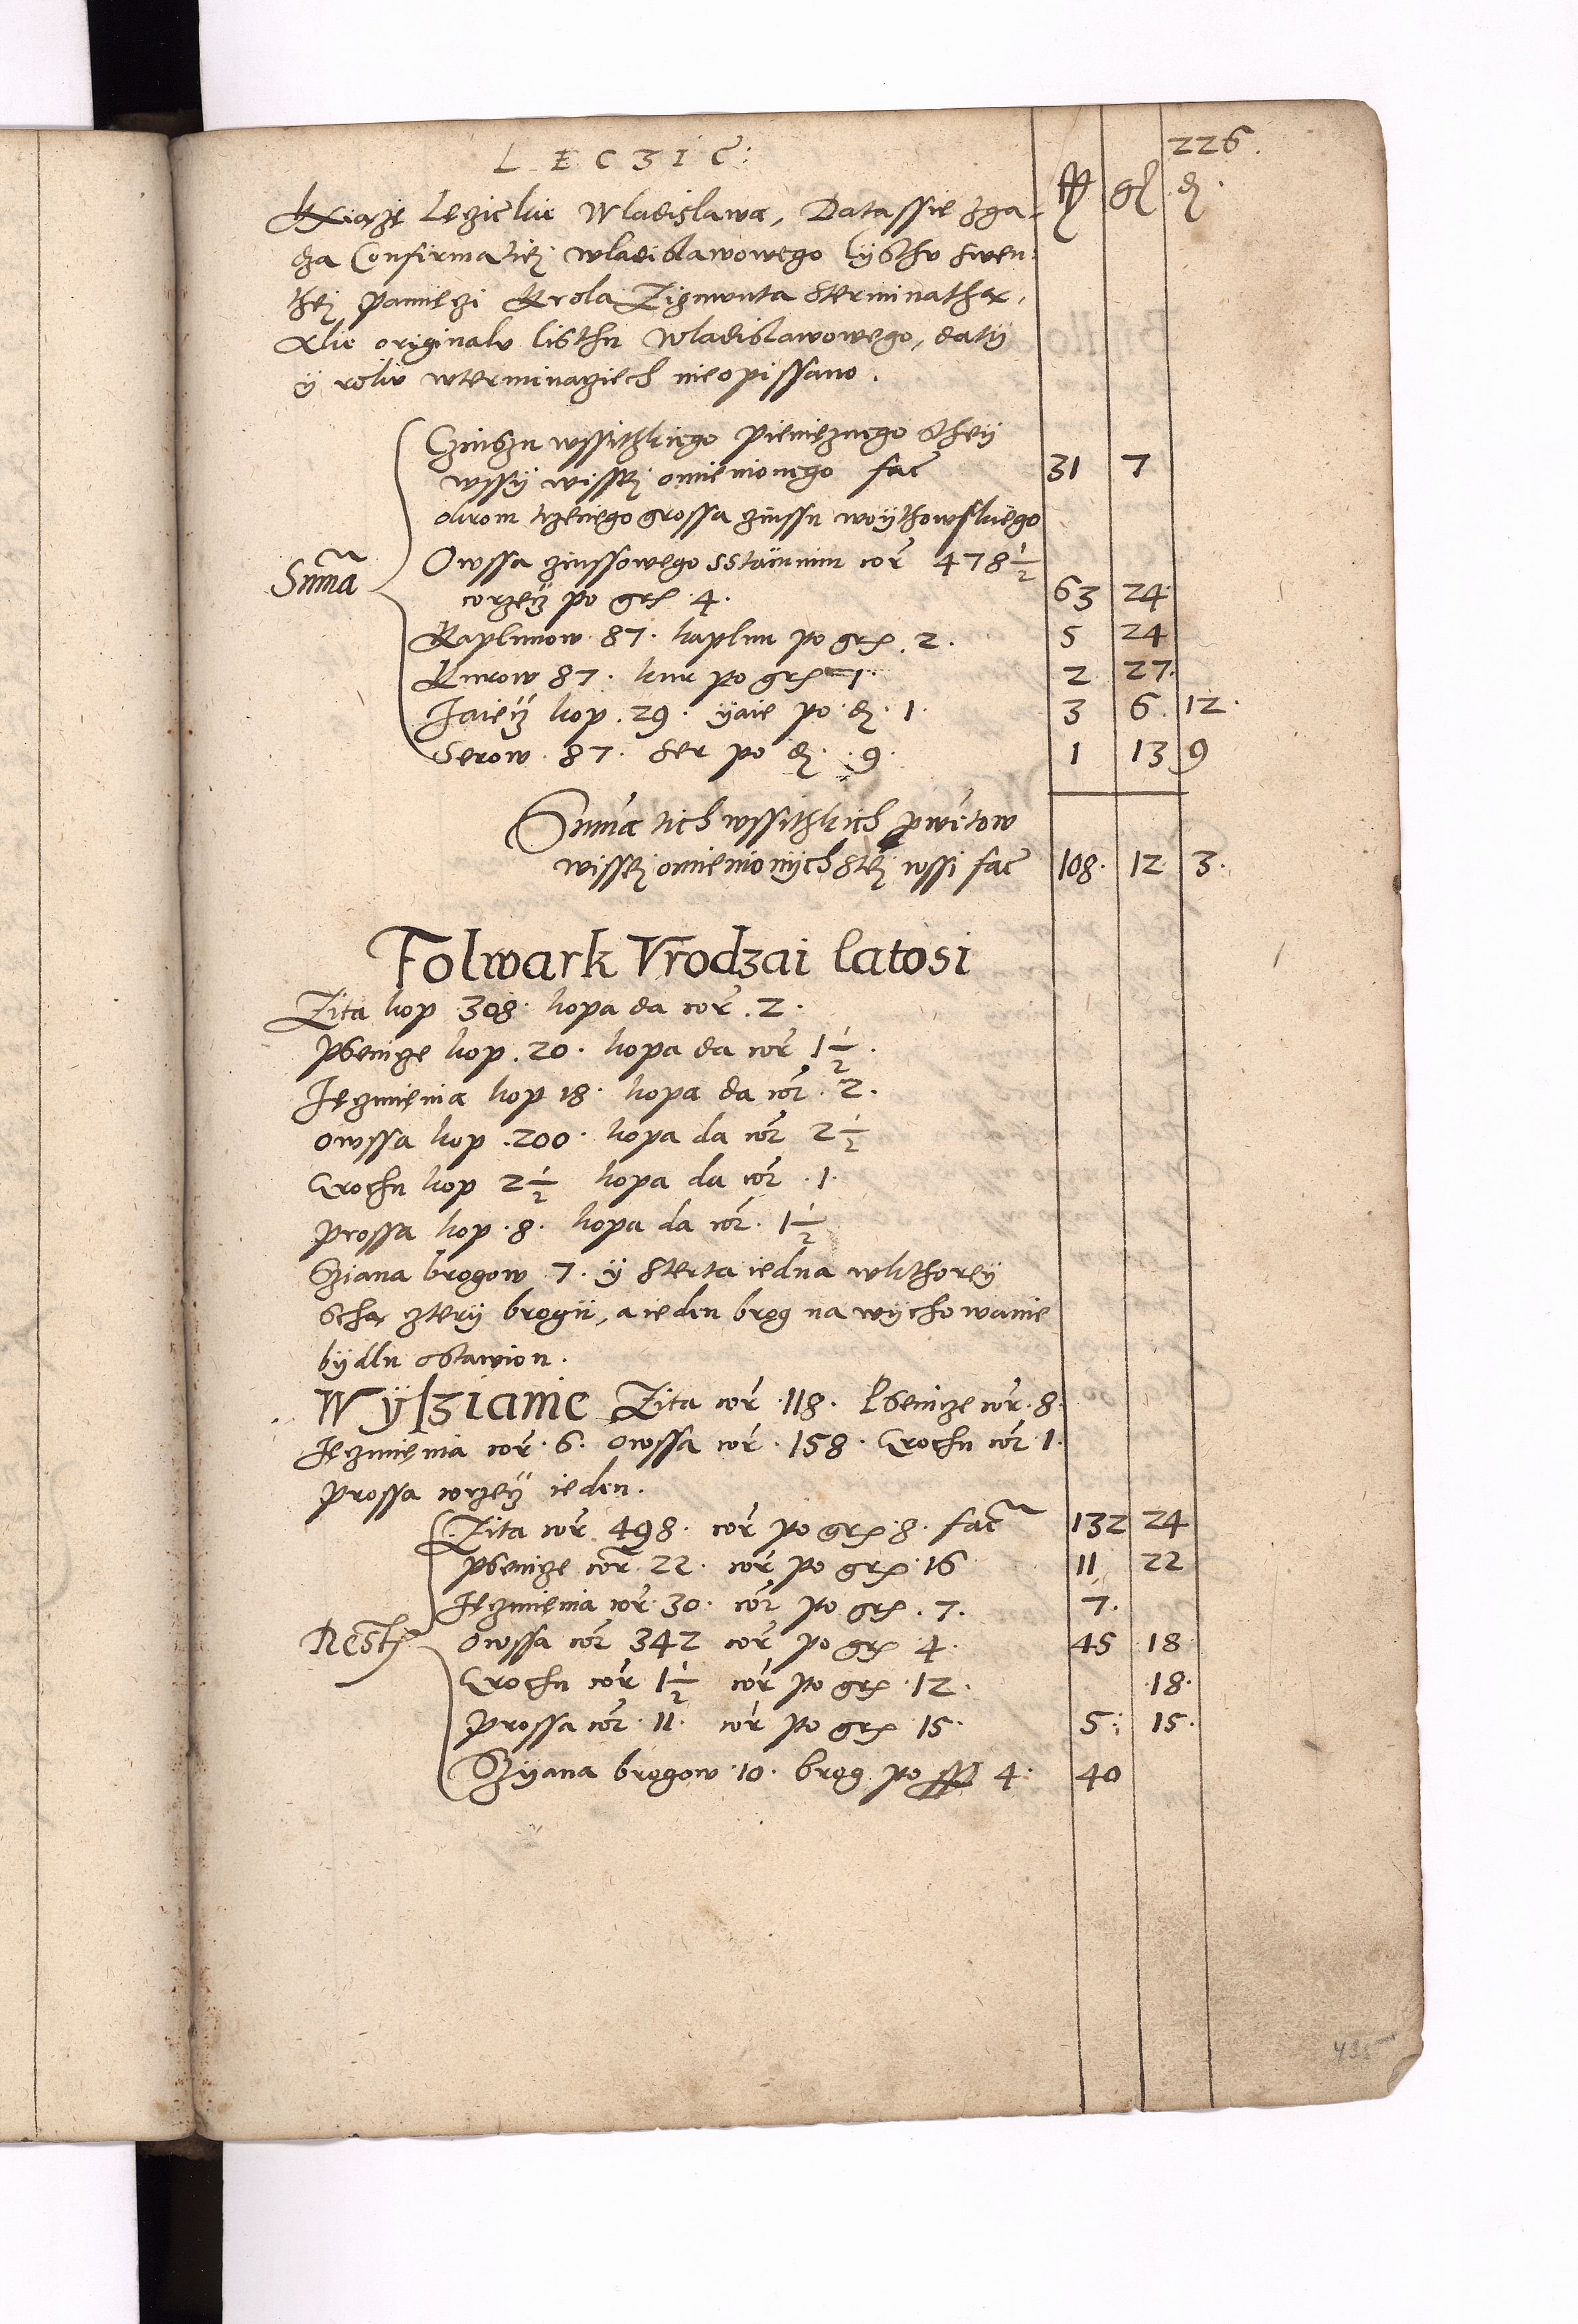 226.
L E C Z I C:
fl gr d.
Kxiążę Lęczickie Wladislawa, Data ssie zga-
dza Confirmatiej wladislawowego lysthv swen:
thej pamięczi Krola Zigmunta sterminathą,
Alie oryginalv listhu Wladislawowego, daty
ÿ rokv wterminacziech nie opissano.
Czinszu wssithkiego pieniężnego sthey
wssÿ wissej omienionego fac 31 7
okrom trzeciego grossa czinssu woÿthowskiego
Summa
Owssa czinssowego sstacinim cor 478 1/2
corzecz po gr. 4. 63 24
Kaplunow 87. kaplun po gr. 2. 5 24
Kurow 87. kur po gr 1. 2 27.
Jaiecz kop. 29. ÿaie po d. 1. 3 6. 12.
Serow. 87. ser po d. 9. 1 13 9
Summa tich wssithkich prwetow
wissej omienionÿch stej wssi fac 108. 12 3.
Folwark Vrodzai latosi
Zita kop 308. kopa da cor. 2.
Psenicze kop. 20. kopa da cor 1 1/2.
Jęczmienia kop 18. kopa da cor. 2.
Owssa kop .200. kopa da cor 2 1/2
Grochu kop 2 1/2 kopa da cor .1.
Prossa kop .8. kopa da cor. 1 1/2
Sziana brogow 7. ÿ sterta iedna wkthorey
schą czterÿ brogii, a ieden brog na wychowanie
bÿdlu ostawion.
Wÿszianie Zita cor .118. Psenicze cor. 8.
Jęczmienia cor. 6. Owssa cor. 158. Grochu cor 1.
Prossa corzecz ieden.
Zita cor 498. cor po gr. 8. fac 132 24
Psenicze cor. 22. cor po gr. 16 11 22
Jęczmienia cor. 30. cor po gr. 7. 7.
Restł Owssa cor 342 cor po gr 4. 45 18
Grochu cor 1 1/2 cor po gr. 12. 18.
Prossa cor. 11. cor po gr 15. 5: 15.
Szÿana brogow .10. brog po fl 4. 40
435